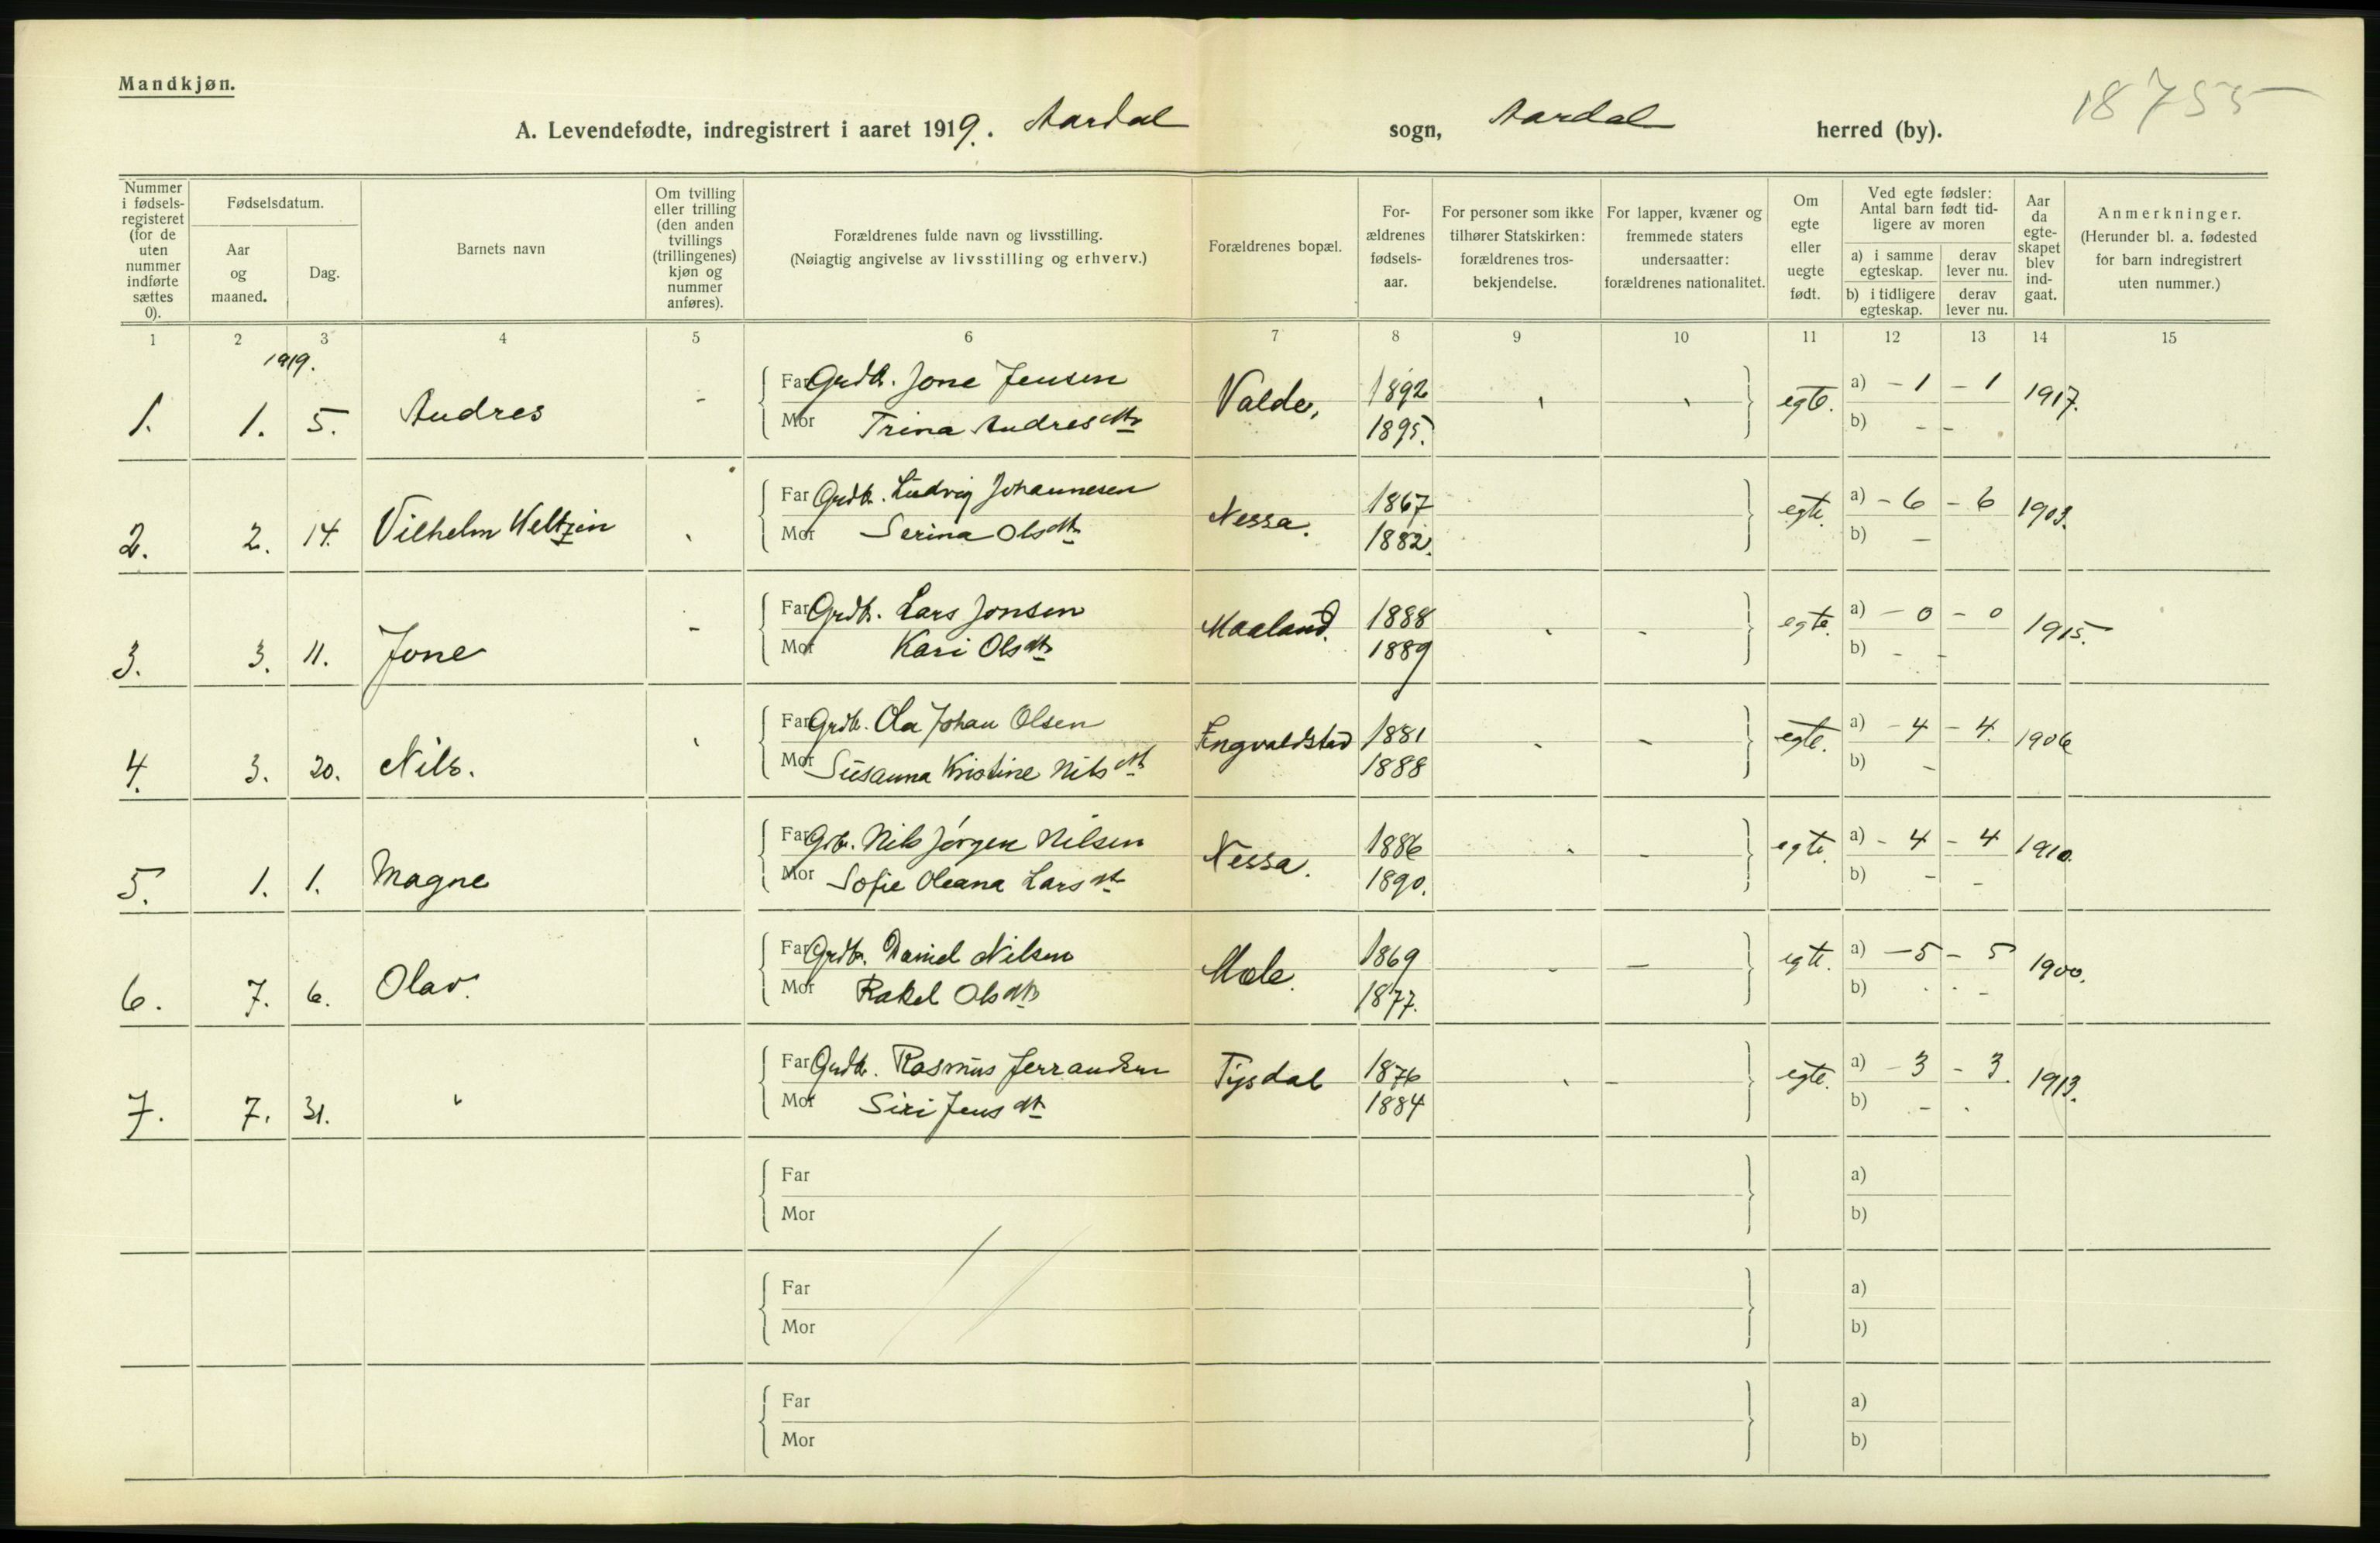 Mandkjøn.
18755
A. Levendefødte, indregistrert i aaret 1919. Aardal sogn, Aardal herred (by).
Nummer i fødselsregisteret (for de uten nummer indførte sættes 0).
Fødselsdatum.
Aar og maaned.
Dag.
Barnets navn
Om tvilling eller trilling (den anden tvillings (trillingenes) kjøn og nummer anføres).
Forældrenes fulde navn og livsstilling.
(Nøiagtig angivelse av livsstilling og erhverv.)
Forældrenes bopæl.
Forældrenes fødselsaar.
For personer som ikke tilhører Statskirken: forældrenes trosbekjendelse.
For lapper, kvæner og fremmede staters undersaatter: forældrenes nationalitet.
Om egte eller uegte født.
Ved egte fødsler: Antal barn født tidligere av moren
a) i samme egteskap.
derav lever nu.
b) i tidligere egteskap.
derav lever nu.
Aar da egteskapet blev indgaat.
Anmerkninger.
(Herunder bl. a. fødested for barn indregistrert uten nummer.)
1 2 3 4 5 6 7 8 9 10 11 12 13 14 15
1919.
1. 1. 5. Andres - Far Grdb. Jone Jensen Valde, 1892 egte. a) - 1 - 1 1917.
Mor Trina Andresdtr 1895. b) - -
2. 2. 14. Vilhelm Weltzin Far Grdb. Ludvig Johannesen Nessa. 1867 egte. a) - 6 - 6 1903.
Mor Serina Olsdtr 1882. b) -
3. 3. 11. Jone - Far Grdb. Lars Jonsen Maaland. 1888 - egte. a) - 0 - 0 1915.
Mor Kari Olsdtr 1889 b) - -
4. 3. 20. Nils. Far Grdb. Ola Johan Olsen 1881 - egte. a) - 4 - 4. 1906
Mor Susanna Kristine Nilsdtr 1888 b) -
5. 1. 1. Magne Far Grb. Nils Jørgen Nilsen Nessa. 1886 - egte. a) - 4 - 4 1910.
Mor Sofie Oleana Larsdtr 1890. b) - -
6. 7. 6. Olav. Far Grdb. Daniel Nilsen Mæle. 1869 - - egte. a) - 5 - 5 1900.
Mor Rakel Olsdtr 1877. b) -
7. 7. 31. " Far Grdb. Rasmus Tysdal 1876 - egte. a) - 3 - 3. 1913.
Mor Siri Jensdtr 1884 b) -
Far a)
Mor b)
Far a)
Mor b)
Far a)
Mor b)